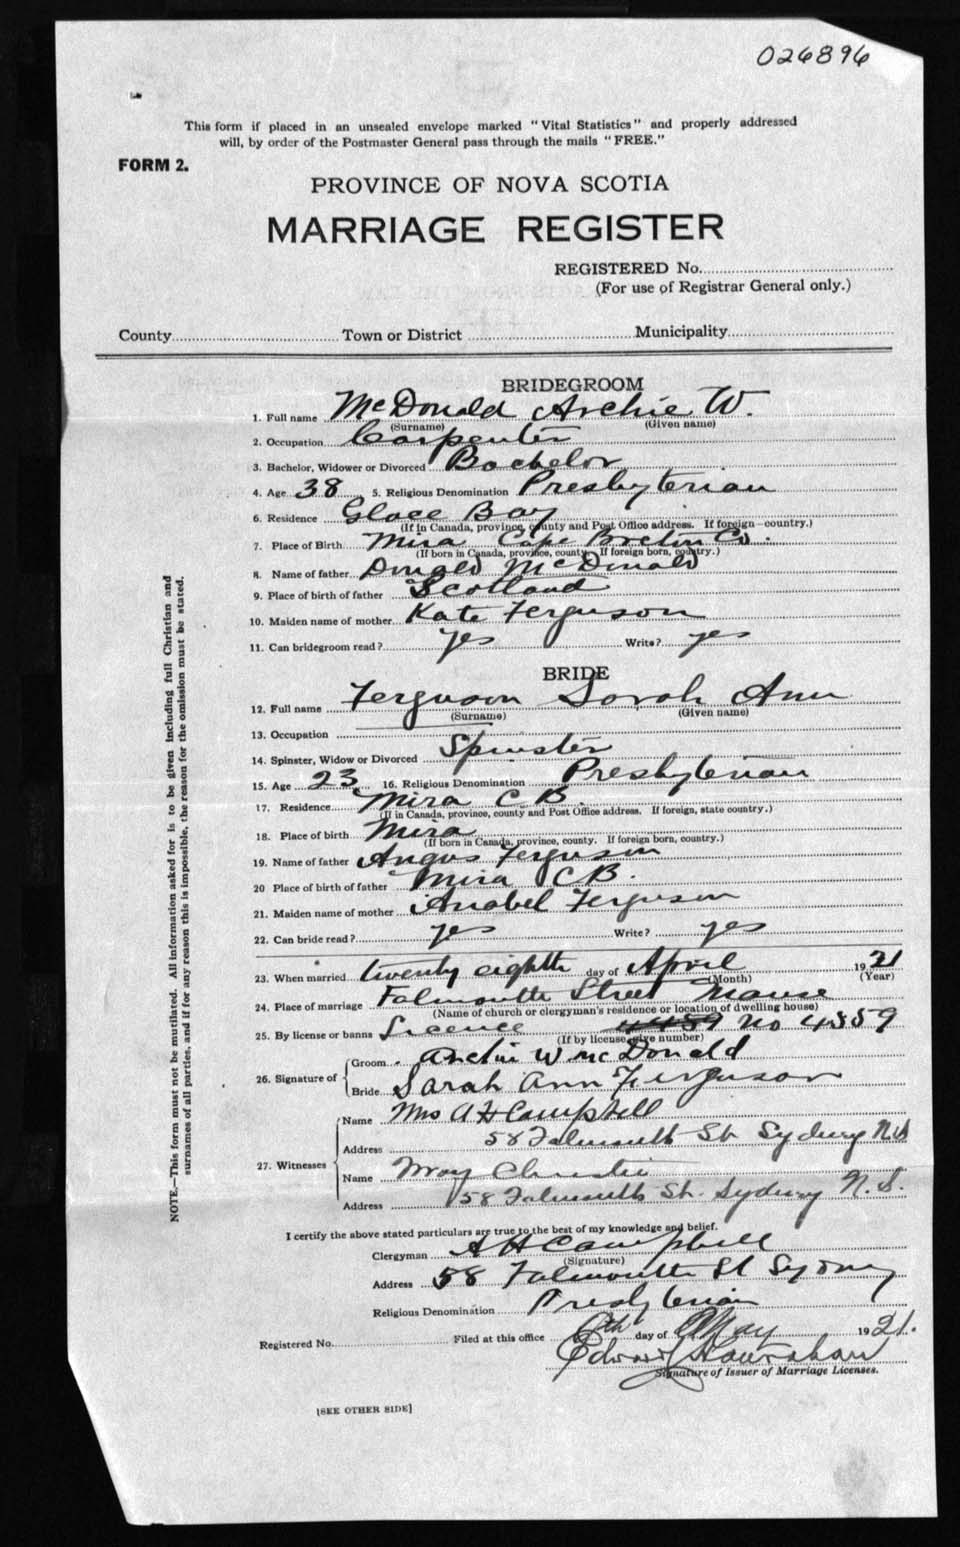 026896
This form if placed in an unsealed envelope marked "Vital Statistics" and properly addressed
will, by order of the Postmaster General pass through the mails "FREE."
FORM 2.
PROVINCE OF NOVA SCOTIA
MARRIAGE REGISTER
REGISTERED No.
(For use of Registrar General only.)
County Town or District Municipality
BRIDEGROOM
1. Full name McDonald Archie W.
(Surname) (Given name)
2. Occupation Carpenter
3. Bachelor, Widower or Divorced Bachelor
4. Age 38 5. Religious Denomination Presbyterian
6. Residence Glace Bay
(If in Canada, province, county and Post Office address. If foreign—country.)
7. Place of Birth Mira Cape Breton Co.
(If born in Canada, province, county. If foreign born, country.)
8. Name of father Donald McDonald
9. Place of birth of father Scotland
10. Maiden name of mother Kate Ferguson
11. Can bridegroom read? yes Write? yes
BRIDE
12. Full name Ferguson Sarah Ann
(Surname) (Given name)
13. Occupation
14. Spinster, Widow or Divorced Spinster
15. Age 23 16. Religious Denomination Presbyterian
17. Residence Mira C B.
(If in Canada, province, county and Post Office address. If foreign, state country.)
18. Place of birth Mira
(If born in Canada, province, county. If foreign born, country.)
19. Name of father Angus Ferguson
20 Place of birth of father Mira C B.
21. Maiden name of mother Anabel Ferguson
22. Can bride read? yes Write? yes
23. When married twenty eighth day of April 1921
(Month) (Year)
24. Place of marriage Falmouth Street Manse
(Name of church or clergyman's residence or location of dwelling house)
25. By license or banns Licence 4459 No 4559
(If by license give number)
26. Signature of
Groom Archie W McDonald
Bride Sarah Ann Ferguson
27. Witnesses
Name Mrs A H Campbell
Address 58 Falmouth St Sydney N.S
Name May Christie
Address 58 Falmouth St. Sydney N.S.
I certify the above stated particulars are true to the best of my knowledge and belief.
Clergyman A H Campbell
(Signature)
Address 58 Falmouth St Sydney
Religious Denomination Presbyterian
Registered No. Filed at this office 6th day of May 1921.
Edward
Signature of Issuer of Marriage Licenses.
[SEE OTHER SIDE]
NOTE.—This form must not be mutilated. All information asked for is to be given including full Christian and
surnames of all parties, and if for any reason this is impossible, the reason for the omission must be stated.